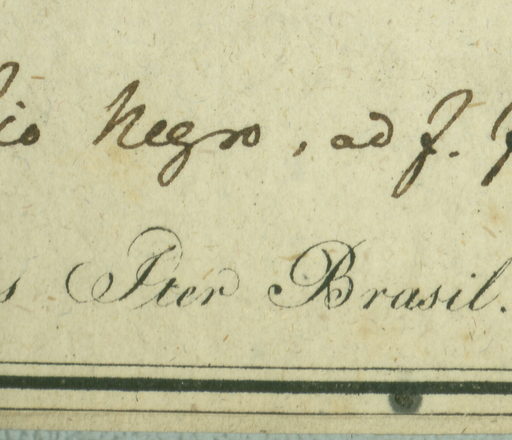 io Negro, ad f.
s Iter Brasil.